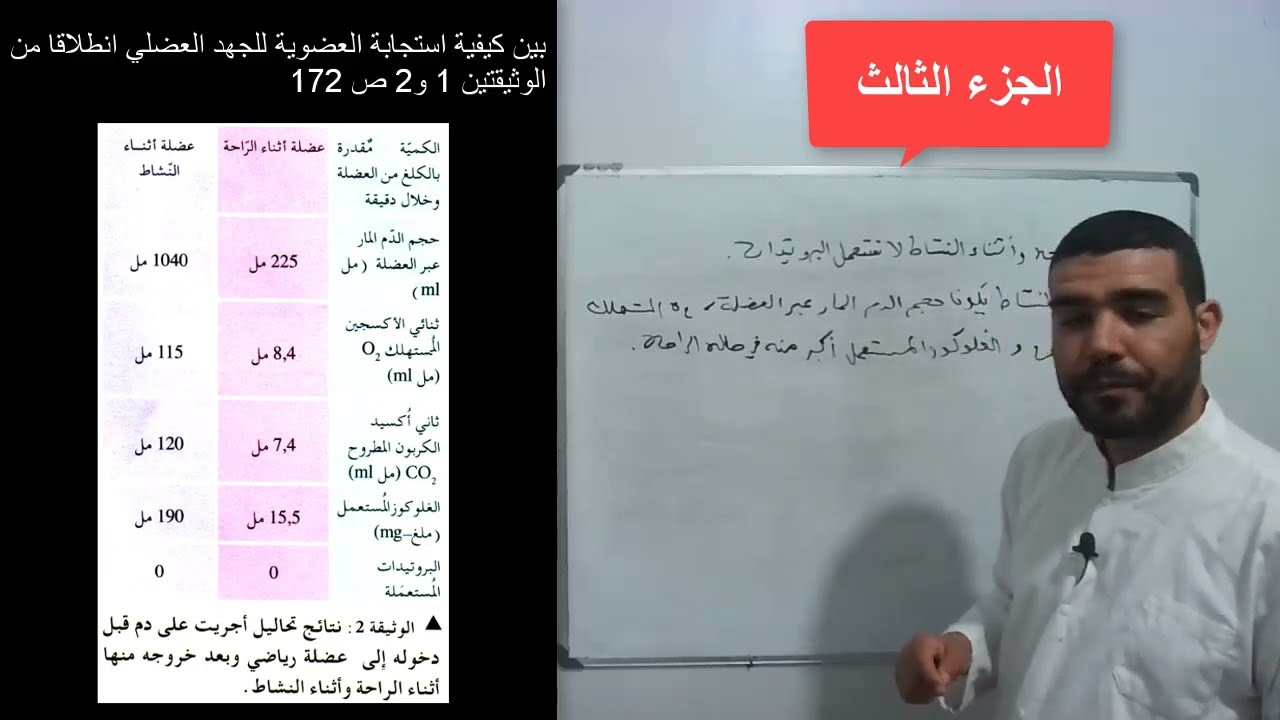 بين كيفية استجابة العضوية للجهد العضلي انطلاقا من
الوثيقتين 1 و2 ص 172
الجزء الثالث
الكميّة مُقدرة
بالكلغ من العضلة
وخلال دقيقة
عضلة أثناء الرّاحة
عضلة أثناء
النّشاط
حجم الدّم المار
عبر العضلة (مل
ml)
225 مل
1040 مل
ثنائي الأكسجين
المُستهلك O₂
(مل ml)
8,4 مل
115 مل
ثاني أُكسيد
الكربون المطروح
CO₂ (مل ml)
7,4 مل
120 مل
الغلوكوز المُستعمل
(ملغ–mg)
15,5 مل
190 مل
البروتيدات
المُستعمَلة
0
0
▲ الوثيقة 2: نتائج تحاليل أجريت على دم قبل
دخوله إلى عضلة رياضي وبعد خروجه منها
أثناء الراحة وأثناء النشاط.
وأثناء النشاط لا تستعمل البروتيدات.
النشاط يكون حجم الدم المار عبر العضلة، و O₂ المستهلك
و الغلوكوز المستعمل أكبر منه في حالة الراحة.